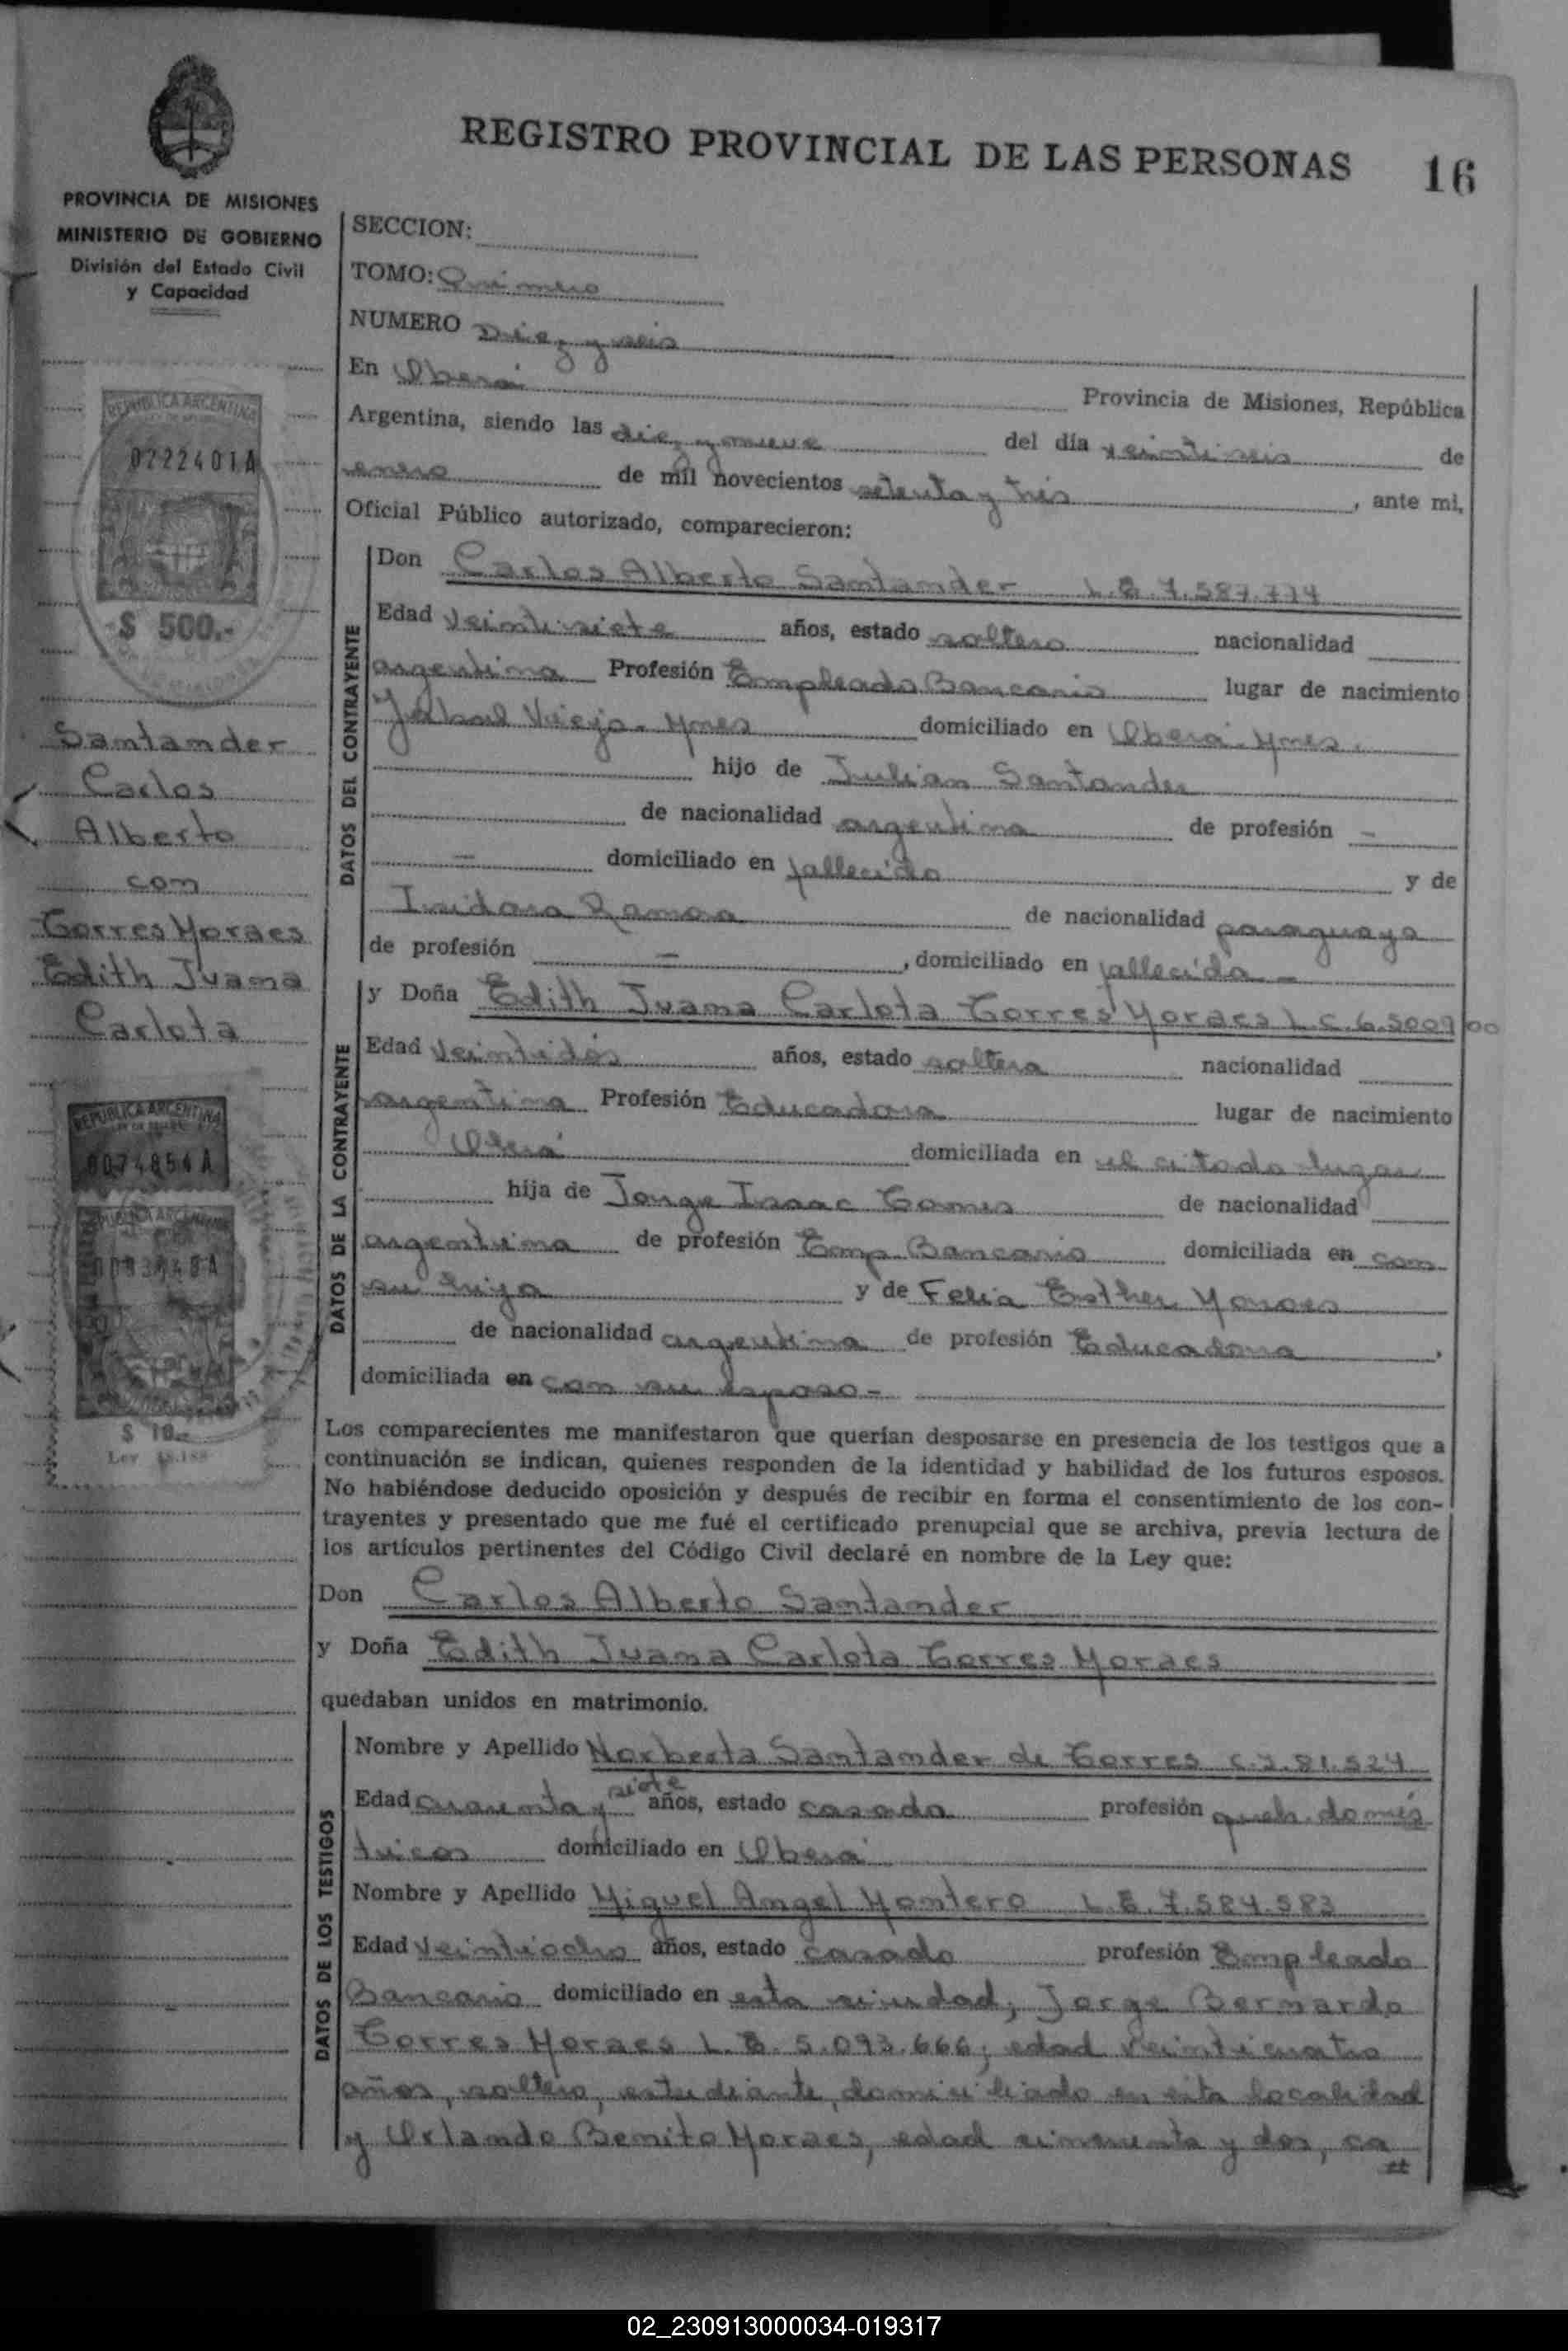 REGISTRO PROVINCIAL DE LAS PERSONAS 16
PROVINCIA DE MISIONES
MINISTERIO DE GOBIERNO
División del Estado Civil
y Capacidad
REPUBLICA ARGENTINA
0222401A
$ 500.-
Santander
Carlos
Alberto
con
Torres Moraes
Edith Juana
Carlota
REPUBLICA ARGENTINA
0074854 A
REPUBLICA ARGENTINA
$ 10.-
Ley 18.188
SECCION:
TOMO: Primero
NUMERO Diez y seis
En Oberá Provincia de Misiones, República
Argentina, siendo las diez y nueve del día veintiseis de
enero de mil novecientos setenta y tres, ante mi,
Oficial Público autorizado, comparecieron:
DATOS DEL CONTRAYENTE
Don Carlos Alberto Santander L.E 7.587.774
Edad veintisiete años, estado soltero nacionalidad
argentina Profesión Empleado Bancario lugar de nacimiento
Viejo. Mnes domiciliado en Oberá. Mnes.
hijo de Julian Santander
de nacionalidad argentina de profesión -
- domiciliado en fallecido y de
Isidora Ramoa de nacionalidad paraguaya
de profesión -, domiciliado en fallecida -
DATOS DE LA CONTRAYENTE
y Doña Edith Juana Carlota Torres Moraes L.C. 6.500900
Edad veintidós años, estado soltera nacionalidad
argentina Profesión Educadora lugar de nacimiento
Oberá domiciliada en el citado lugar
hija de Jorge Isaac Torres de nacionalidad
argentina de profesión Emp Bancario domiciliada en con
su hija y de Felia Esther Moraes
de nacionalidad argentina de profesión Educadora,
domiciliada en con su esposo-
Los comparecientes me manifestaron que querían desposarse en presencia de los testigos que a
continuación se indican, quienes responden de la identidad y habilidad de los futuros esposos.
No habiéndose deducido oposición y después de recibir en forma el consentimiento de los con-
trayentes y presentado que me fué el certificado prenupcial que se archiva, previa lectura de
los artículos pertinentes del Código Civil declaré en nombre de la Ley que:
Don Carlos Alberto Santander
y Doña Edith Juana Carlota Torres Moraes
quedaban unidos en matrimonio.
DATOS DE LOS TESTIGOS
Nombre y Apellido Norberta Santander de Torres C.I. 81.524
Edad cuarenta y siete años, estado casada profesión queh. domés
ticos domiciliado en Oberá
Nombre y Apellido Miguel Angel Montero L.E. 7.584.583
Edad veintiocho años, estado casado profesión Empleado
Bancario domiciliado en esta ciudad, Jorge Bernardo
Torres Moraes L.E. 5.093.666; edad veinticuatro
años, soltero, estudiante, domiciliado en esta localidad
y Orlando Benito Moraes, edad cincuenta y dos, ca
02_230913000034-019317